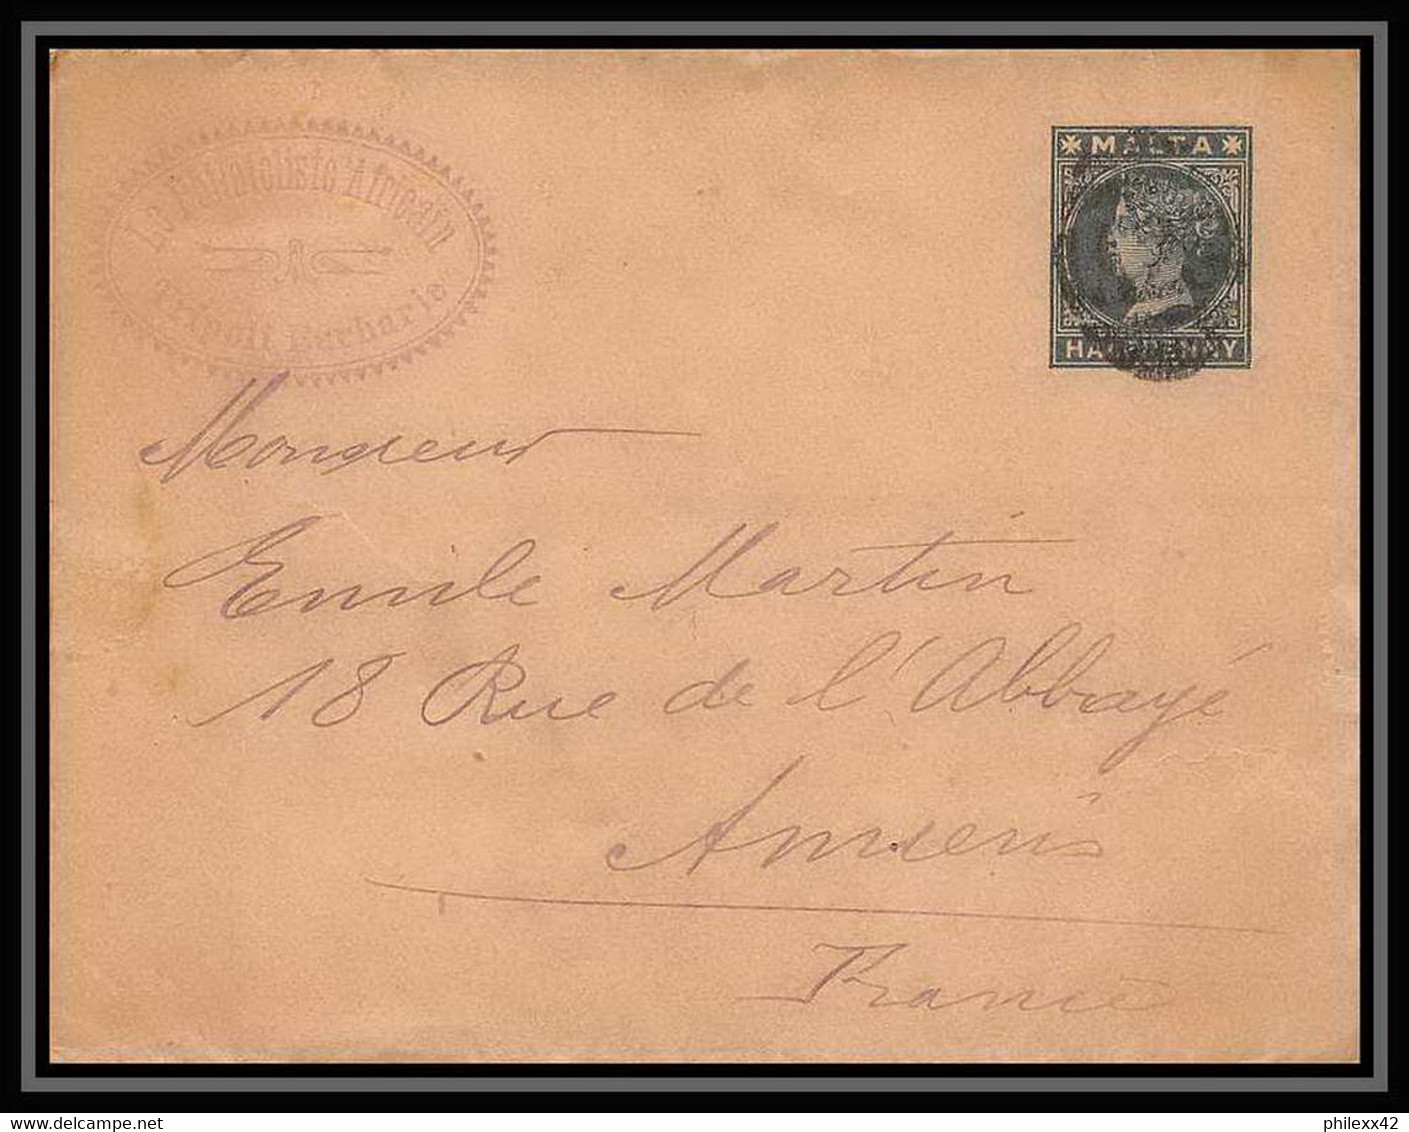 Le Philatéliste Africain
Tripoli Barbarie
MALTA
HALFPENNY
Monsieur
Emile Martin
18 Rue de l'Abbaye
Amiens
France
delcampe.net
philexx42